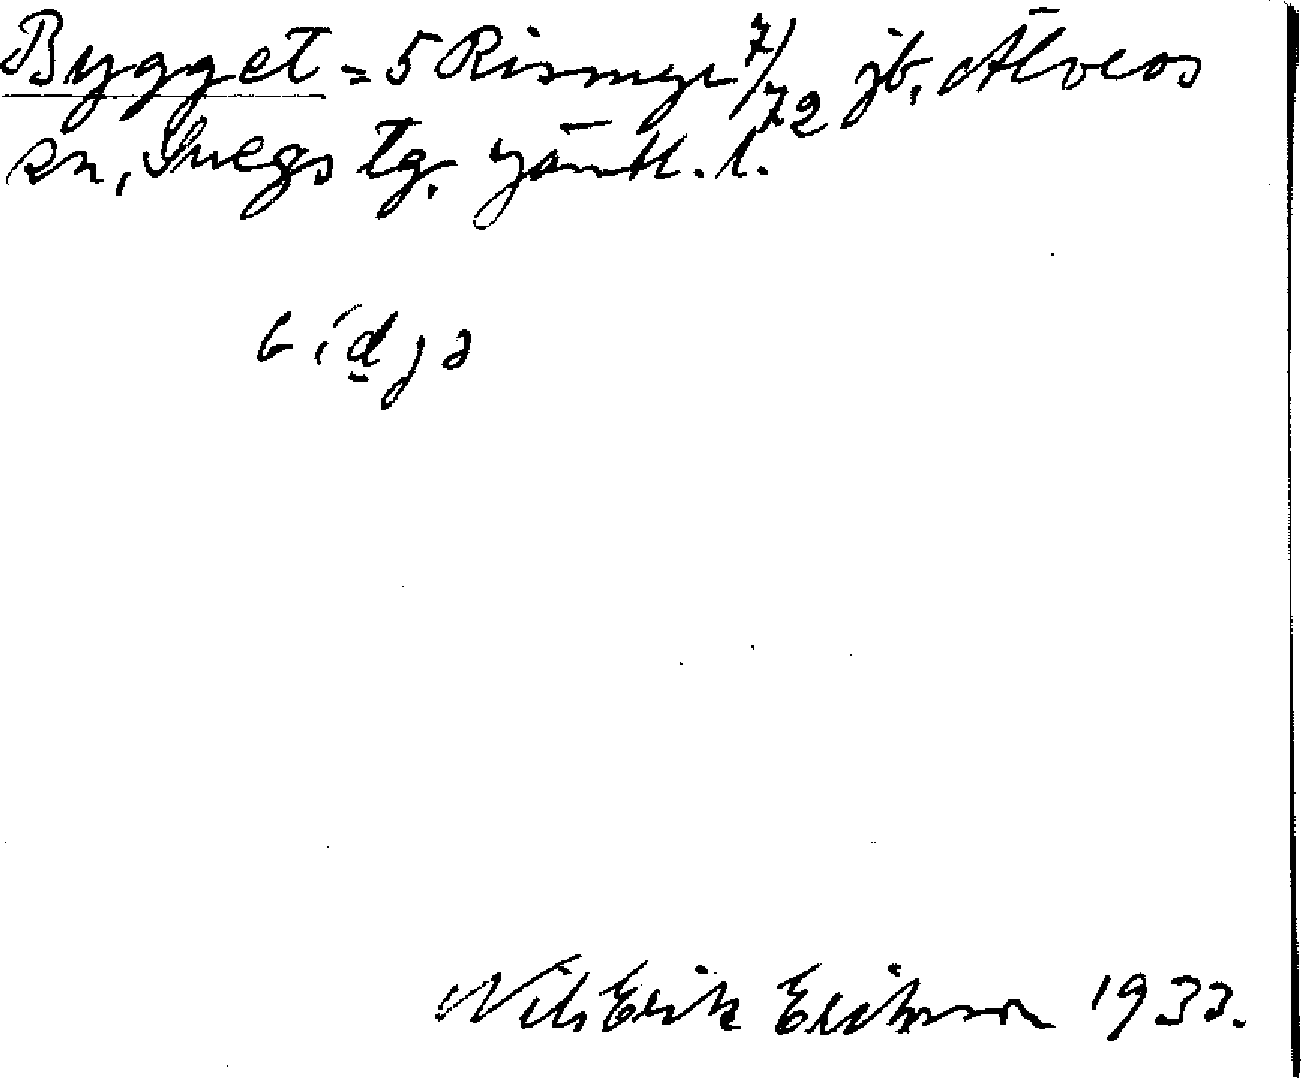 Bygget = 5 Rismyr 7/72 jb. Älvros
sn, Svegs tg. Jämtl. l.
bídjə
Nils Erik Eriksson 193